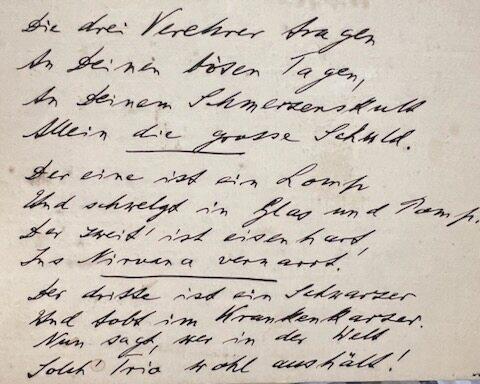 Die drei Verehrer tragen
An Deinen bösen Tagen,
An Deinem Schmerzenskult
Allein die grosse Schuld.
Der eine ist ein Lomp
Und schwelgt in Glas und Pomp.
Der zweit' ist eisenhart
Ins Nirvana vernarrt!
Der dritte ist ein Schwarzer
Und tobt im Krankenkarzer.
Nun sagt, wer in der Welt
Solch' Trio wohl aushält!